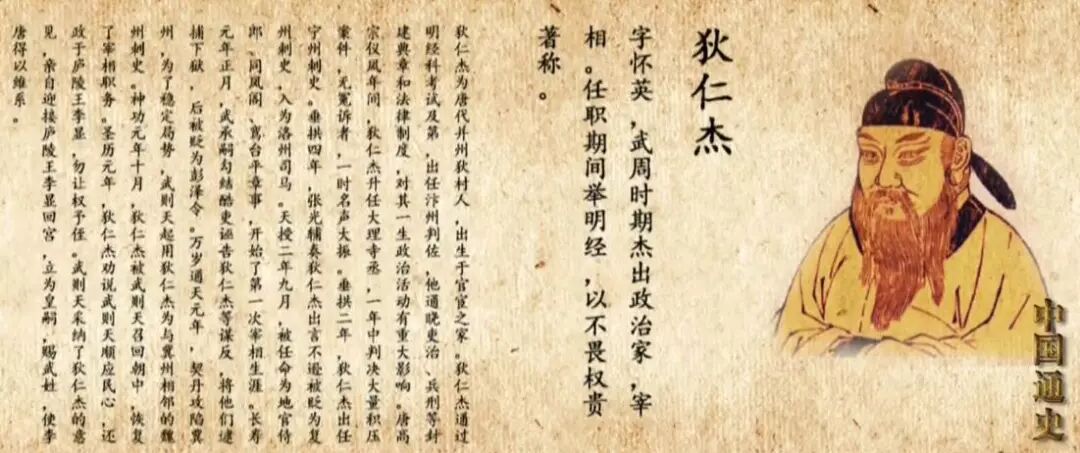 狄仁杰
字怀英,武周时期杰出政治家,宰
相。任职期间举明经,以不畏权贵
著称。
狄仁杰为唐代并州狄村人,出生于官宦之家。狄仁杰通过
明经科考试及第,出任汴州判佐,他通晓吏治、兵刑等封
建典章和法律制度,对其一生政治活动有重大影响。唐高
宗仪凤年间,狄仁杰升任大理寺丞,一年中判决大量积压
案件,无冤诉者,一时名声大振。垂拱二年,狄仁杰出任
宁州刺史。垂拱四年,张光辅奏狄仁杰出言不逊被贬为复
州刺史,入为洛州司马。天授二年九月,被任命为地官侍
郎、同凤阁、鸾台平章事,开始了第一次宰相生涯。长寿
元年正月,武承嗣勾结酷吏诬告狄仁杰等谋反,将他们逮
捕下狱,后被贬为彭泽令。万岁通天元年,契丹攻陷冀
州,为了稳定局势,武则天起用狄仁杰为与冀州相邻的魏
州刺史。神功元年十月,狄仁杰被武则天召回朝中,恢复
了宰相职务。圣历元年,狄仁杰劝说武则天顺应民心,还
政于庐陵王李显,勿让权予侄。武则天采纳了狄仁杰的意
见,亲自迎接庐陵王李显回宫,立为皇嗣,赐武姓,使李
唐得以维系。
中国通史